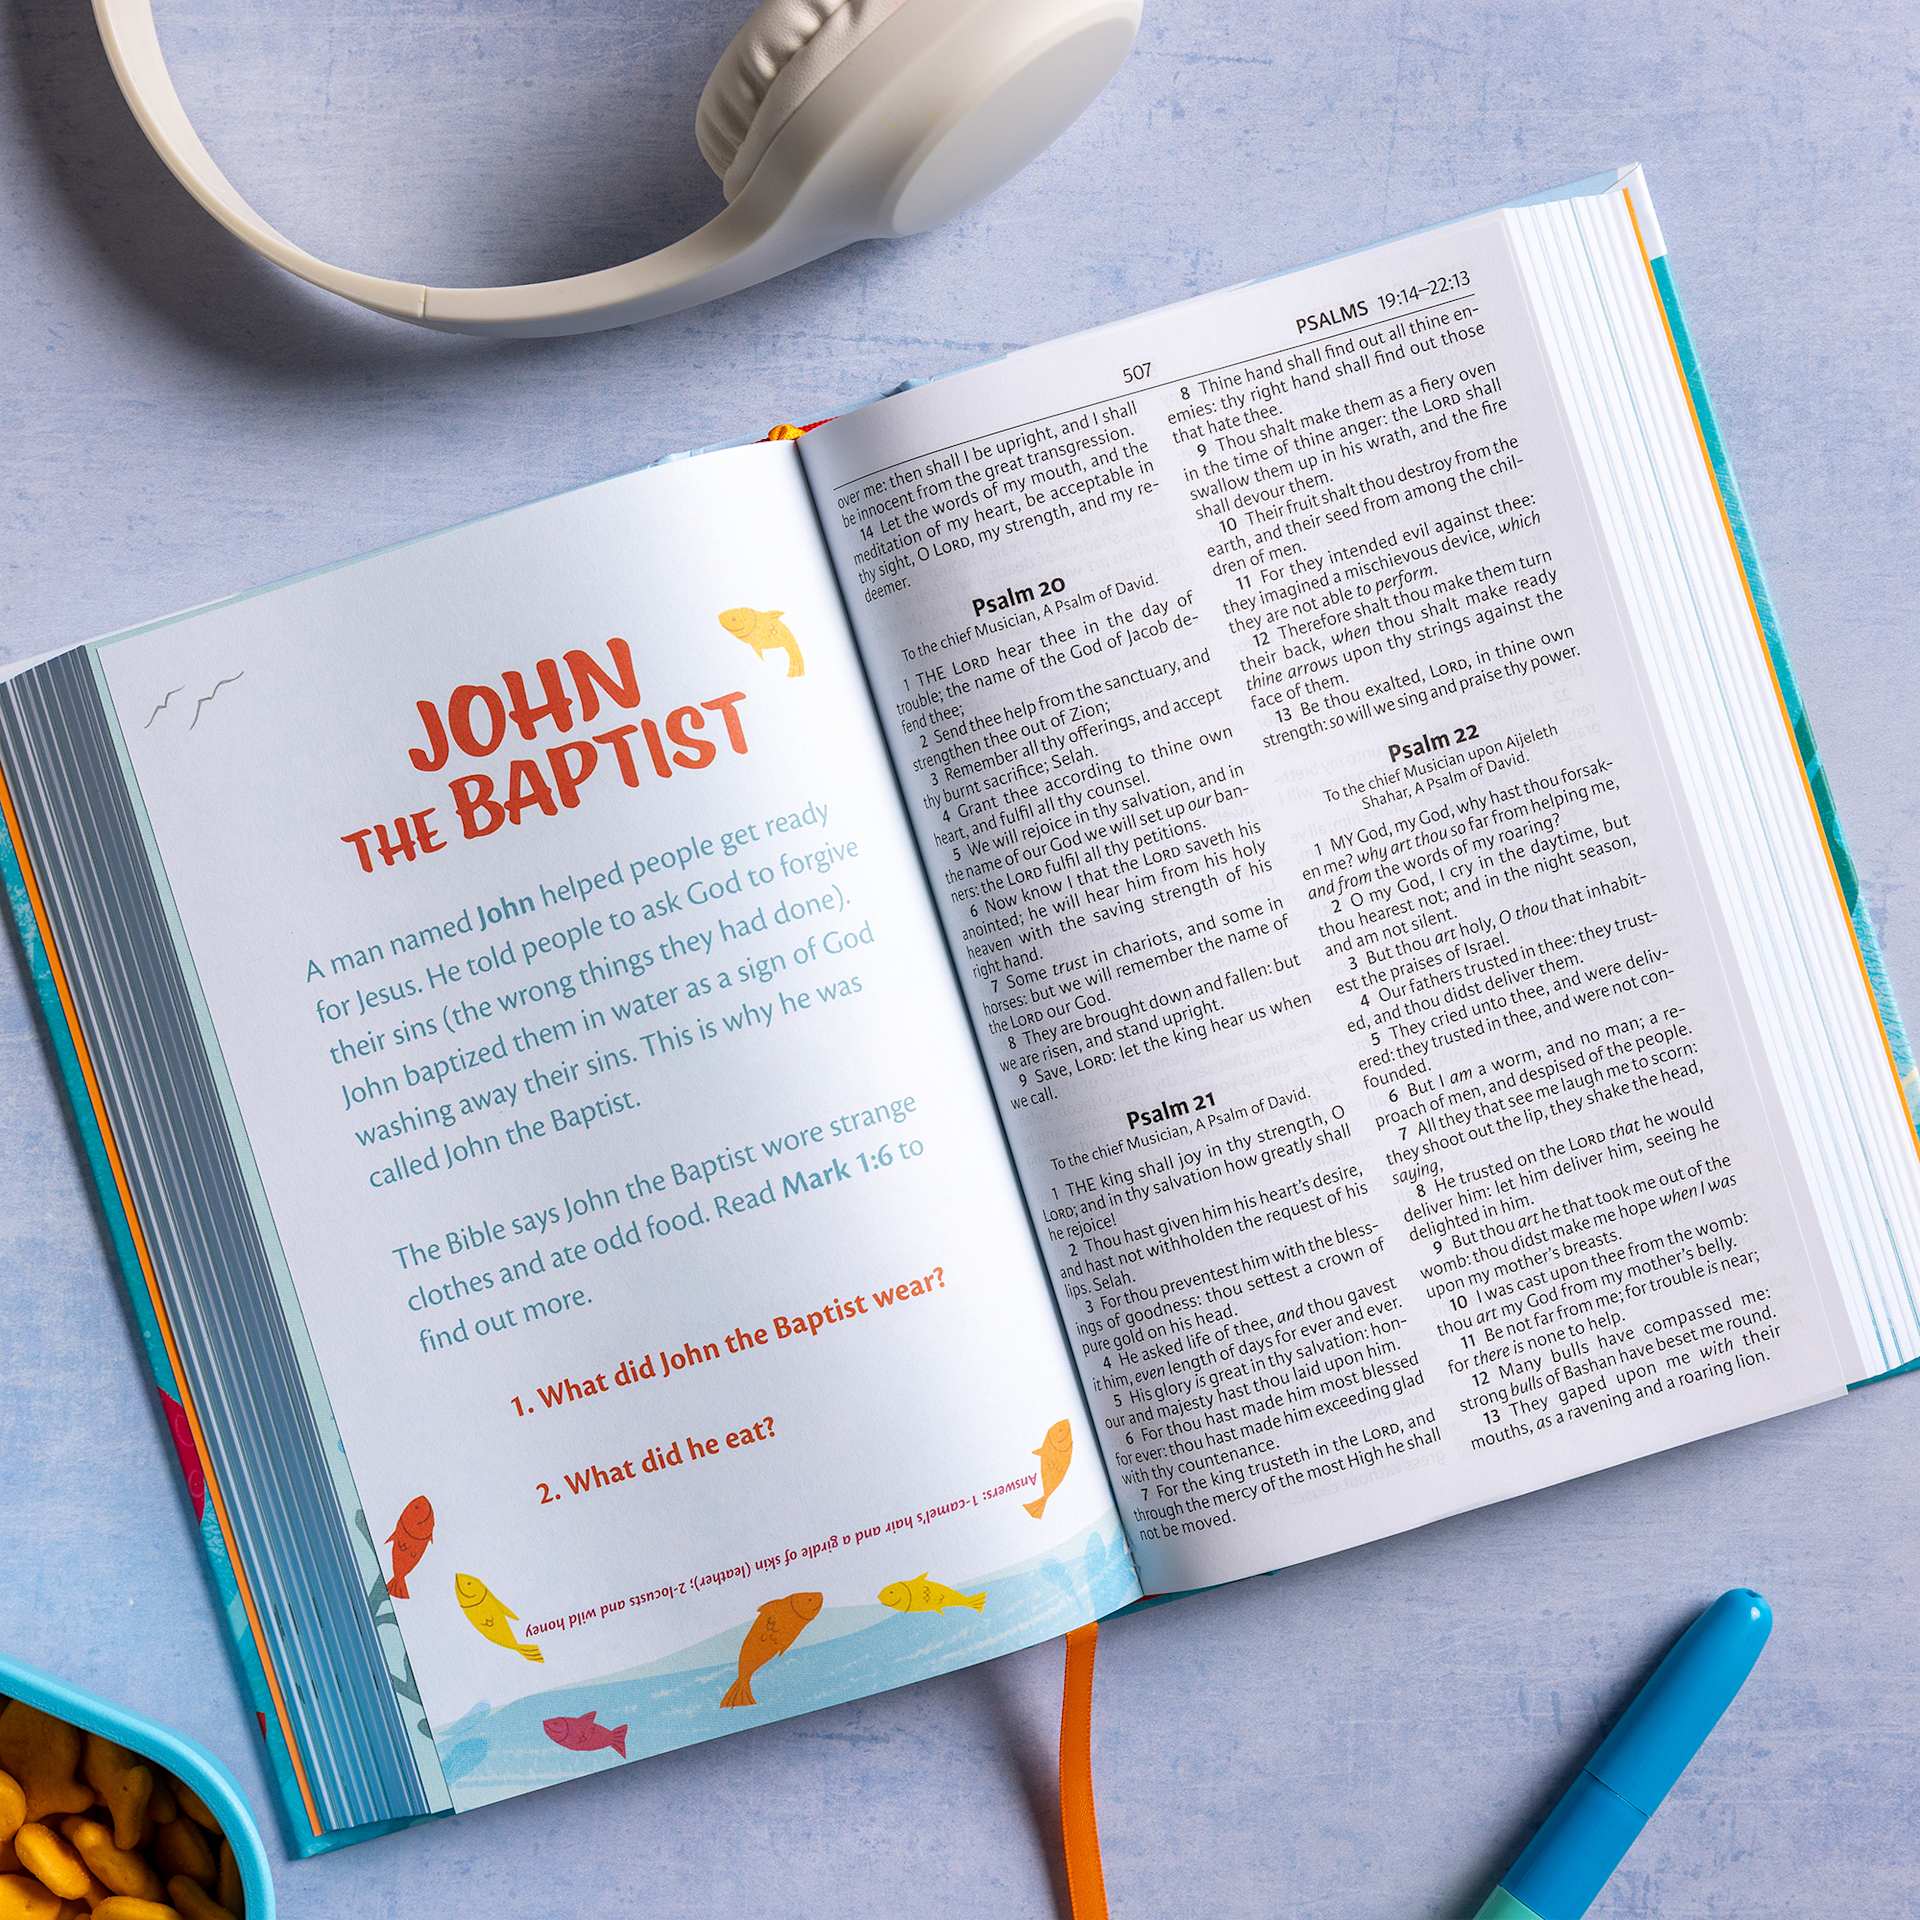 JOHN
THE BAPTIST
A man named John helped people get ready
for Jesus. He told people to ask God to forgive
their sins (the wrong things they had done).
John baptized them in water as a sign of God
washing away their sins. This is why he was
called John the Baptist.
The Bible says John the Baptist wore strange
clothes and ate odd food. Read Mark 1:6 to
find out more.
1. What did John the Baptist wear?
2. What did he eat?
Answers: 1-camel's hair and a girdle of skin (leather); 2-locusts and wild honey
507
PSALMS 19:14–22:13
over me: then shall I be upright, and I shall
be innocent from the great transgression.
14 Let the words of my mouth, and the
meditation of my heart, be acceptable in
thy sight, O LORD, my strength, and my re-
deemer.
Psalm 20
To the chief Musician, A Psalm of David.
1 THE LORD hear thee in the day of
trouble; the name of the God of Jacob de-
fend thee;
2 Send thee help from the sanctuary, and
strengthen thee out of Zion;
3 Remember all thy offerings, and accept
thy burnt sacrifice; Selah.
4 Grant thee according to thine own
heart, and fulfil all thy counsel.
5 We will rejoice in thy salvation, and in
the name of our God we will set up our ban-
ners: the LORD fulfil all thy petitions.
6 Now know I that the LORD saveth his
anointed; he will hear him from his holy
heaven with the saving strength of his
right hand.
7 Some trust in chariots, and some in
horses: but we will remember the name of
the LORD our God.
8 They are brought down and fallen: but
we are risen, and stand upright.
9 Save, LORD: let the king hear us when
we call.
Psalm 21
To the chief Musician, A Psalm of David.
1 THE king shall joy in thy strength, O
LORD; and in thy salvation how greatly shall
he rejoice!
2 Thou hast given him his heart's desire,
and hast not withholden the request of his
lips. Selah.
3 For thou preventest him with the bless-
ings of goodness: thou settest a crown of
pure gold on his head.
4 He asked life of thee, and thou gavest
it him, even length of days for ever and ever.
5 His glory is great in thy salvation: hon-
our and majesty hast thou laid upon him.
6 For thou hast made him most blessed
for ever: thou hast made him exceeding glad
with thy countenance.
7 For the king trusteth in the LORD, and
through the mercy of the most High he shall
not be moved.
8 Thine hand shall find out all thine en-
emies: thy right hand shall find out those
that hate thee.
9 Thou shalt make them as a fiery oven
in the time of thine anger: the LORD shall
swallow them up in his wrath, and the fire
shall devour them.
10 Their fruit shalt thou destroy from the
earth, and their seed from among the chil-
dren of men.
11 For they intended evil against thee:
they imagined a mischievous device, which
they are not able to perform.
12 Therefore shalt thou make them turn
their back, when thou shalt make ready
thine arrows upon thy strings against the
face of them.
13 Be thou exalted, LORD, in thine own
strength: so will we sing and praise thy power.
Psalm 22
To the chief Musician upon Aijeleth
Shahar, A Psalm of David.
1 MY God, my God, why hast thou forsak-
en me? why art thou so far from helping me,
and from the words of my roaring?
2 O my God, I cry in the daytime, but
thou hearest not; and in the night season,
and am not silent.
3 But thou art holy, O thou that inhabit-
est the praises of Israel.
4 Our fathers trusted in thee: they trust-
ed, and thou didst deliver them.
5 They cried unto thee, and were deliv-
ered: they trusted in thee, and were not con-
founded.
6 But I am a worm, and no man; a re-
proach of men, and despised of the people.
7 All they that see me laugh me to scorn:
they shoot out the lip, they shake the head,
saying,
8 He trusted on the LORD that he would
deliver him: let him deliver him, seeing he
delighted in him.
9 But thou art he that took me out of the
womb: thou didst make me hope when I was
upon my mother's breasts.
10 I was cast upon thee from the womb:
thou art my God from my mother's belly.
11 Be not far from me; for trouble is near;
for there is none to help.
12 Many bulls have compassed me:
strong bulls of Bashan have beset me round.
13 They gaped upon me with their
mouths, as a ravening and a roaring lion.